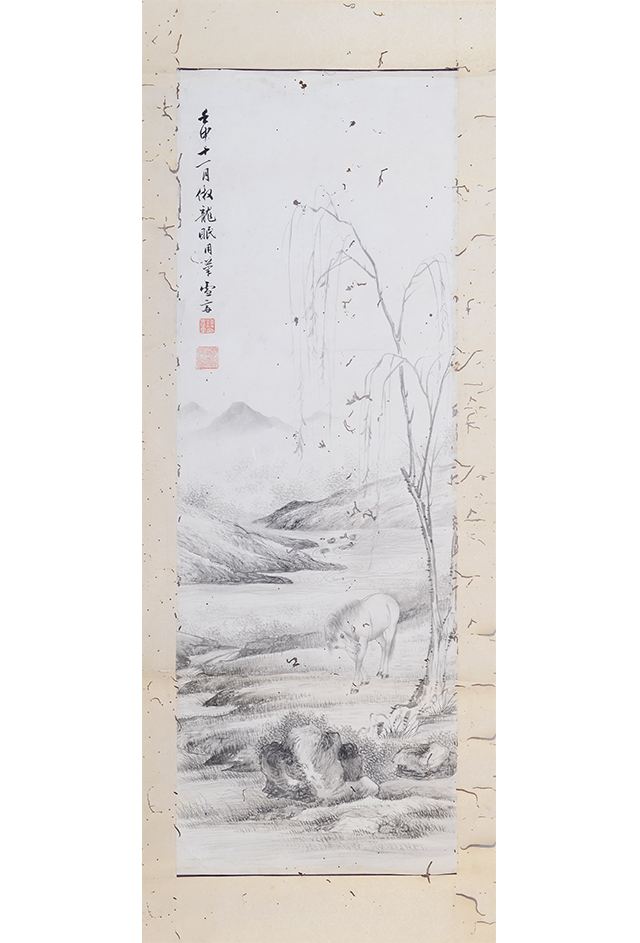 壬申十一月倣龍眠用筆雪齋